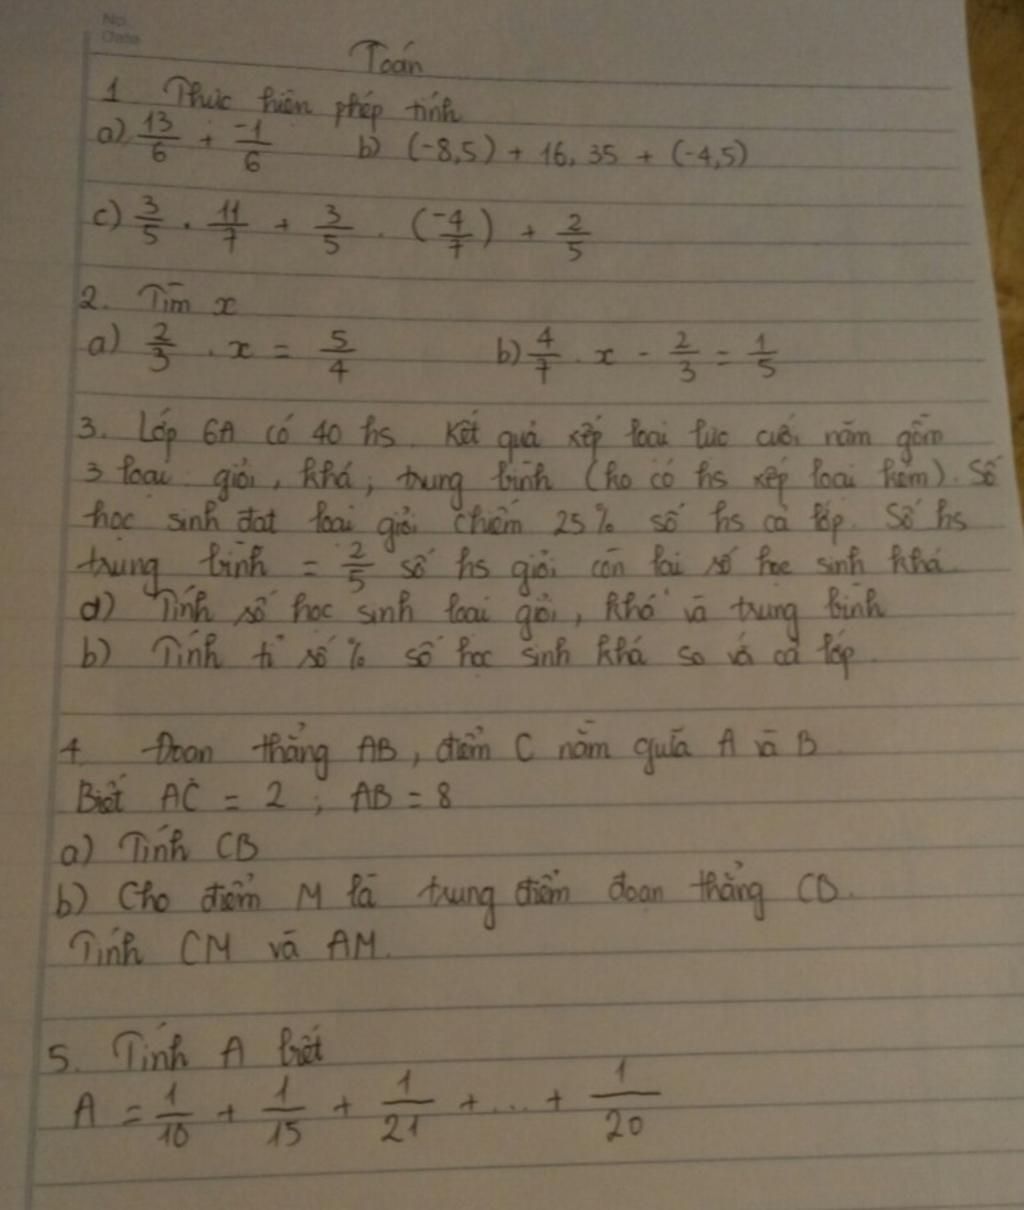 No.
Date
Toán
1 Thực hiện phép tính
a) 13/6 + -1/6 b) (-8,5) + 16,35 + (-4,5)
c) 3/5 . 11/7 + 3/5 . (-4/7) + 2/5
2. Tìm x
a) 2/3 . x = 5/4 b) 4/7 . x - 2/3 = 1/5
3. Lớp 6A có 40 hs. Kết quả xếp loại lực cuối năm gồm
3 loại: giỏi, khá, trung bình (ko có hs xếp loại kém). Số
học sinh đạt loại giỏi chiếm 25% số hs cả lớp. Số hs
trung bình = 2/5 số hs giỏi còn lại số học sinh khá
a) Tính số học sinh loại giỏi, khá và trung bình
b) Tính tỉ số % số học sinh khá so vś cả lớp.
4 Đoạn thẳng AB, điểm C nằm giữa A và B
Biết AC = 2 ; AB = 8
a) Tính CB
b) Cho điểm M là trung điểm đoạn thẳng CB.
Tính CM và AM.
5. Tính A biết
A = 1/10 + 1/15 + 1/21 + ... + 1/20